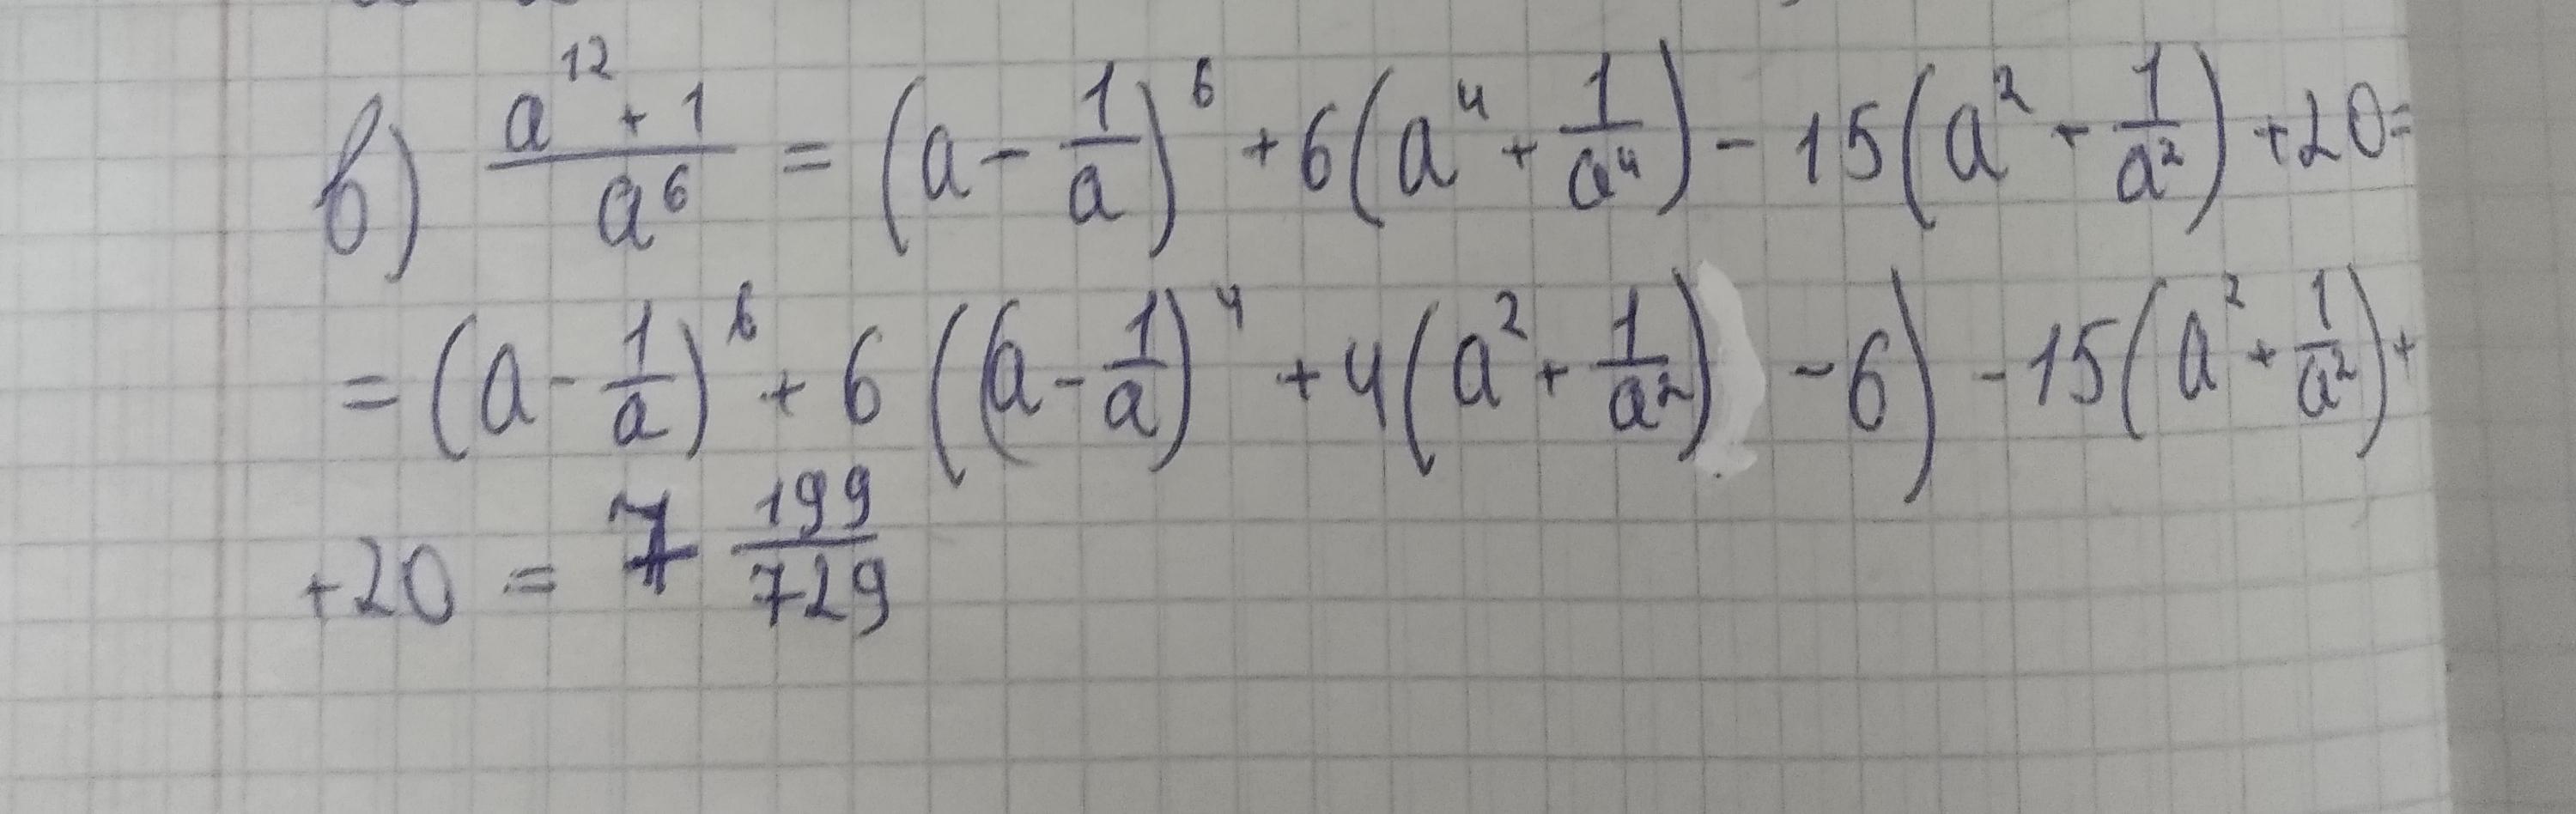 в) \frac{a^{12}+1}{a^6} = (a - \frac{1}{a})^6 + 6(a^4 + \frac{1}{a^4}) - 15(a^2 + \frac{1}{a^2}) + 20 =
= (a - \frac{1}{a})^6 + 6((a - \frac{1}{a})^4 + 4(a^2 + \frac{1}{a^2}) - 6) - 15(a^2 + \frac{1}{a^2}) +
+20 = 7 \frac{199}{729}